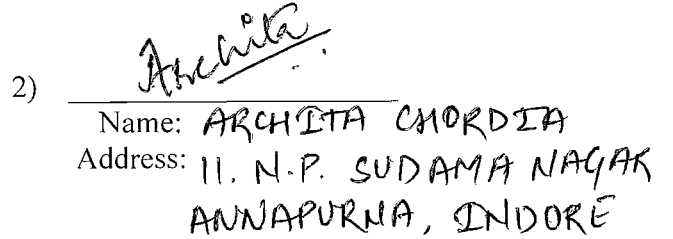 Archita
2)
Name: ARCHITA CHORDIA
Address: 11. N.P. SUDAMA NAGAR
ANNAPURNA, INDORE